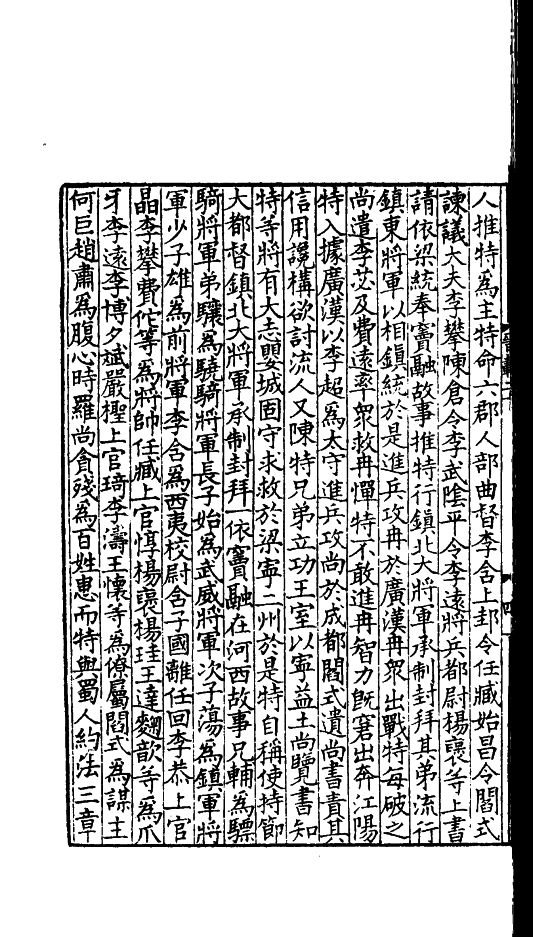 人推特爲主特命六郡人部曲督李含上邽令任臧始昌令閻式
諫議大夫李攀陳倉令李武隂平令李遠將兵都尉楊襃等上書
請依梁統奉竇融故事推特行鎮北大將軍承制封拜其弟流行
鎮東將軍以相鎮統於是進兵攻冉於廣漢冉衆出戰特每破之
尚遣李苾及費遠率衆救冉憚特不敢進冉智力旣窘出奔江陽
特入據廣漢以李超爲太守進兵攻尚於成都閻式遺尚書責其
信用讒構欲討流人又陳特兄弟立功王室以寧益土尚覽書知
特等將有大志嬰城固守求救於梁寧二州於是特自稱使持節
大都督鎮北大將軍承制封拜一依竇融在河西故事兄輔爲驃
騎將軍弟驤爲驍騎將軍長子始爲武威將軍次子蕩爲鎮軍將
軍少子雄爲前將軍李含爲西夷校尉含子國離任回李恭上官
晶李攀費佗等爲將帥任臧上官惇楊襃楊珪王達麴歆等爲爪
牙李遠李博夕斌嚴檉上官琦李濤王懷等爲僚屬閻式爲謀主
何巨趙肅爲腹心時羅尚貪殘爲百姓患而特與蜀人約法三章